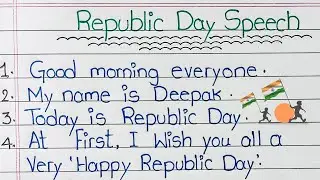 Republic Day Speech
1. Good morning everyone.
2. My name is Deepak.
3. Today is Republic Day.
4. At First, I Wish you all a
Very 'Happy Republic Day'.